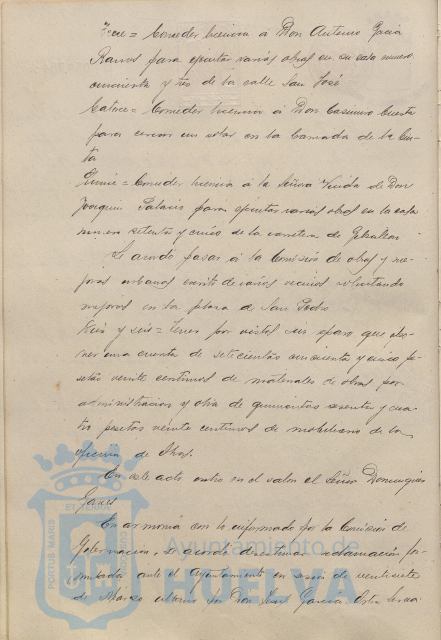 Trece = Conceder licencia á Don Antonio Garcia
Ramos para ejecutar varias obras en su casa numero
cincuenta y tres de la calle San José
Catorce = Conceder licencia á Don Casimiro Cuesta
para cercar un solar en la Barriada de la Cin-
ta
= Conceder licencia á la Señora Viuda de Don
Joaquin Palacis para ejecutar varias obras en la casa
numero setenta y cinco de la carretera de Gibraleon
Se acordó pasar á la Comision de obras y me-
joras urbanas escrito de varios vecinos solicitando
mejoras en la plaza de San Pedro
y seis = Tener por vistas sin reparo que
una cuenta de setecientas cincuenta y cinco pe-
setas veinte centimos de materiales de obras por
administracion y otra de quinientas sesenta y cua-
tro pesetas veinte centimos de mobiliario de la
oficina de Obras.
En este acto entro en el salon el Señor Dominguez
Garcés
En armonia con lo informado por la Comision de
Gobernacion, se acordó desestimar reclamacion for-
mulada ante el Ayuntamiento en sesion de veintisiete
de Marzo ultimo por Don José Garcia
PORTUS MARIS ET TERRAE
Ayuntamiento de
HUELVA